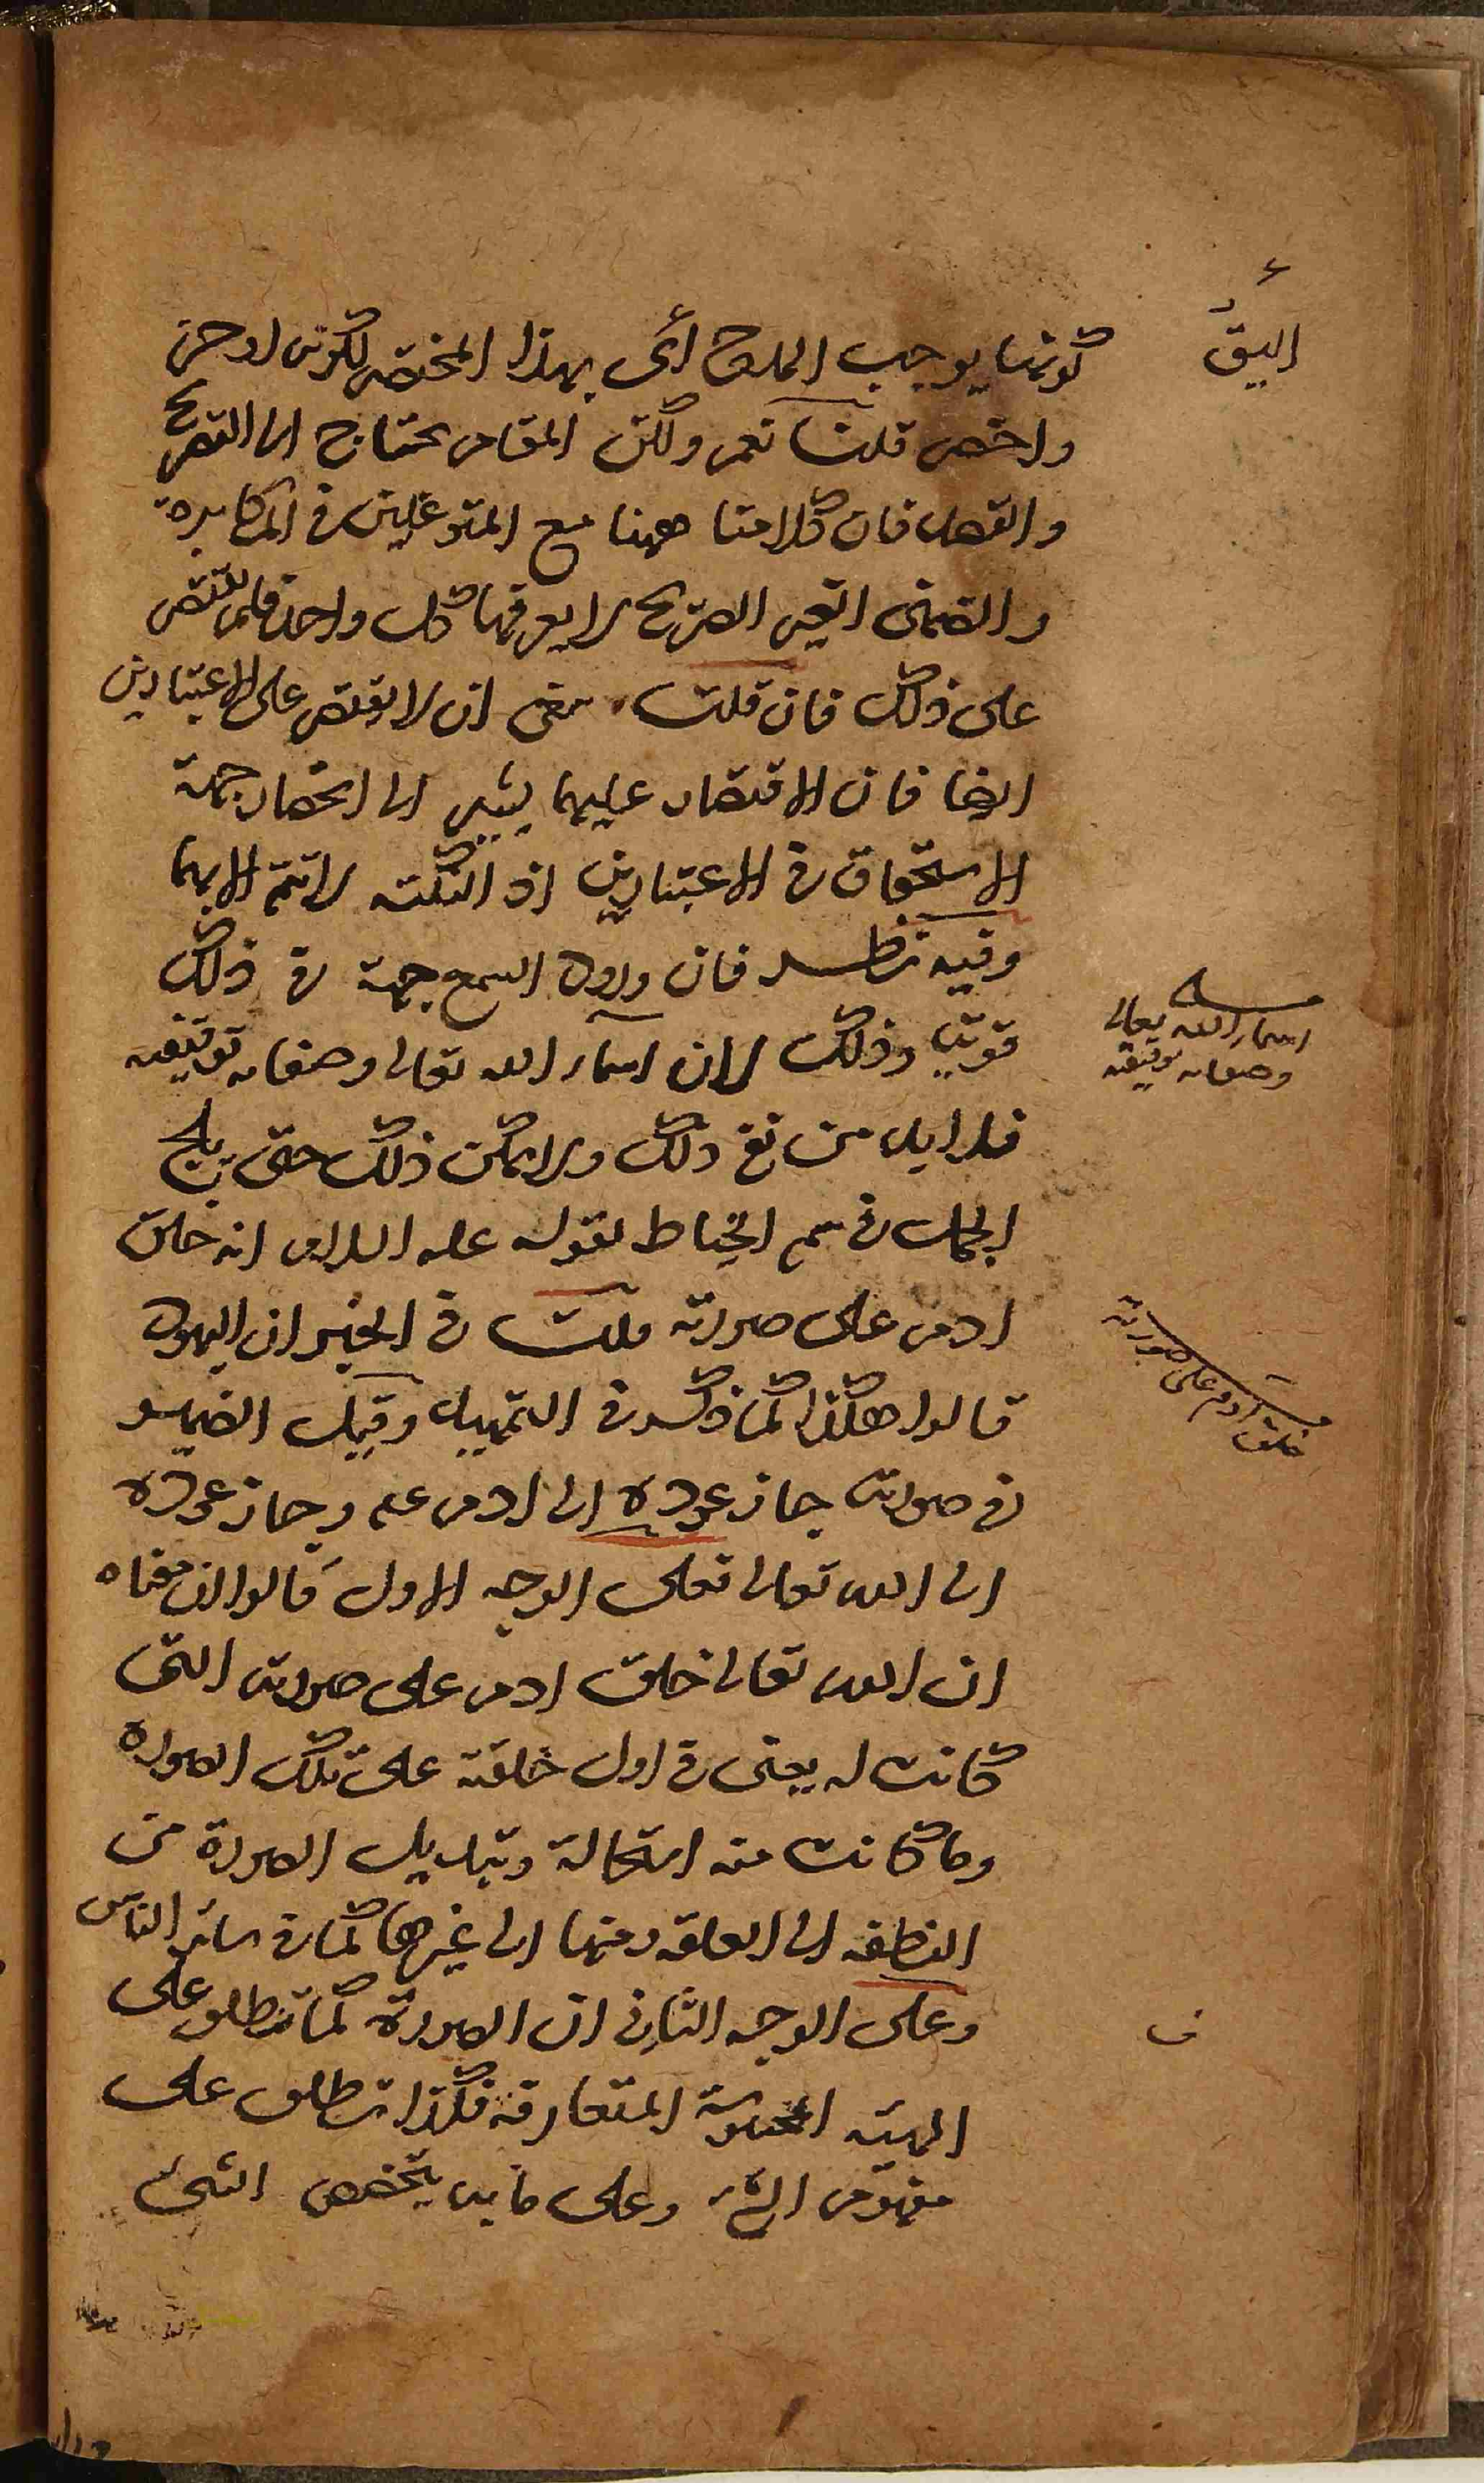 كونهما يوجب المدح أى بهذا المختصر لكونه اوجز
اليق
واخصر قلت نعم ولكن المقام يحتاج الى التصريح
والتفصيل فان كلامنا ههنا مع المتوغلين فى المكابرة
والضمنى الغير الصريح لا يعرفها كل واحد فلم يقتصر
على ذلك فان قلت ينبغى ان لا يقتصر على الاعتبارين
ايضا فان الاقتصار عليهما يشير الى انحصار جهة
الاستحقاق فى الاعتبارين اذ النكتة لا تتم الا بهما
وفيه نظر فان ورود السمع جهة فى ذلك
قوية وذلك لان اسماء الله تعالى وصفاته توقيفية
اسماء الله تعالى
وصفاته توقيفية
فلا بد من ذلك ولا يمكن ذلك حتى يلج
الجمل فى سم الخياط لقوله عليه السلام انه خلق
ادم على صورته قلت فى الخبر ان اليهود
خلق ادم على صورته
قالوا هكذا كما ذكر فى التمهيد وقيل الضمير
فى صورته جاز عوده الى ادم عم وجاز عوده
الى الله تعالى فعلى الوجه الاول قالوا ان معناه
ان الله تعالى خلق ادم على صورته التى
كانت له يعنى فى اول خلقته على تلك الصورة
وما كانت منه استحالة وتبديل الصورة من
النطفة الى العلقة ومنها الى غيرها كما فى سائر الناس
وعلى الوجه الثانى ان الصورة كما تطلق على
ف
الهيئة المحسوسة المتعارفة فكذا تطلق على
مفهوم الشئ وعلى ما به يتخصص الشئ